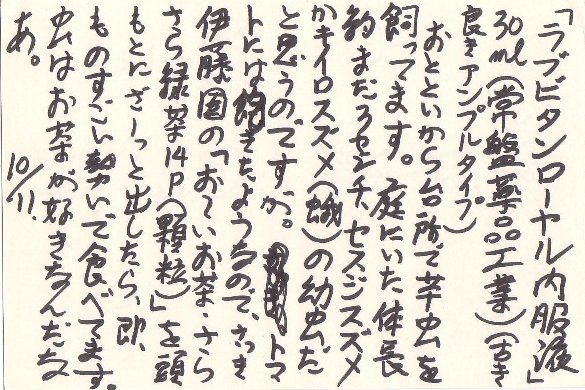 「ラブビタンローヤル内服液」
30ml(常盤薬品工業)(古き
良きアンプルタイプ)
おとといから台所で芋虫を
飼ってます。庭にいた体長
約まだ3センチ、セスジスズメ
かキイロスズメ(蛾)の幼虫だ
と思うのですが。トマ
トには飽きたようなので、さっき
伊藤園の「お〜いお茶・さら
さら緑茶14P(顆粒)」を頭
もとにざーっと出したら、即、
ものすごい勢いで食べてます。
虫はお茶が好きなんだな
あ。 10/11.